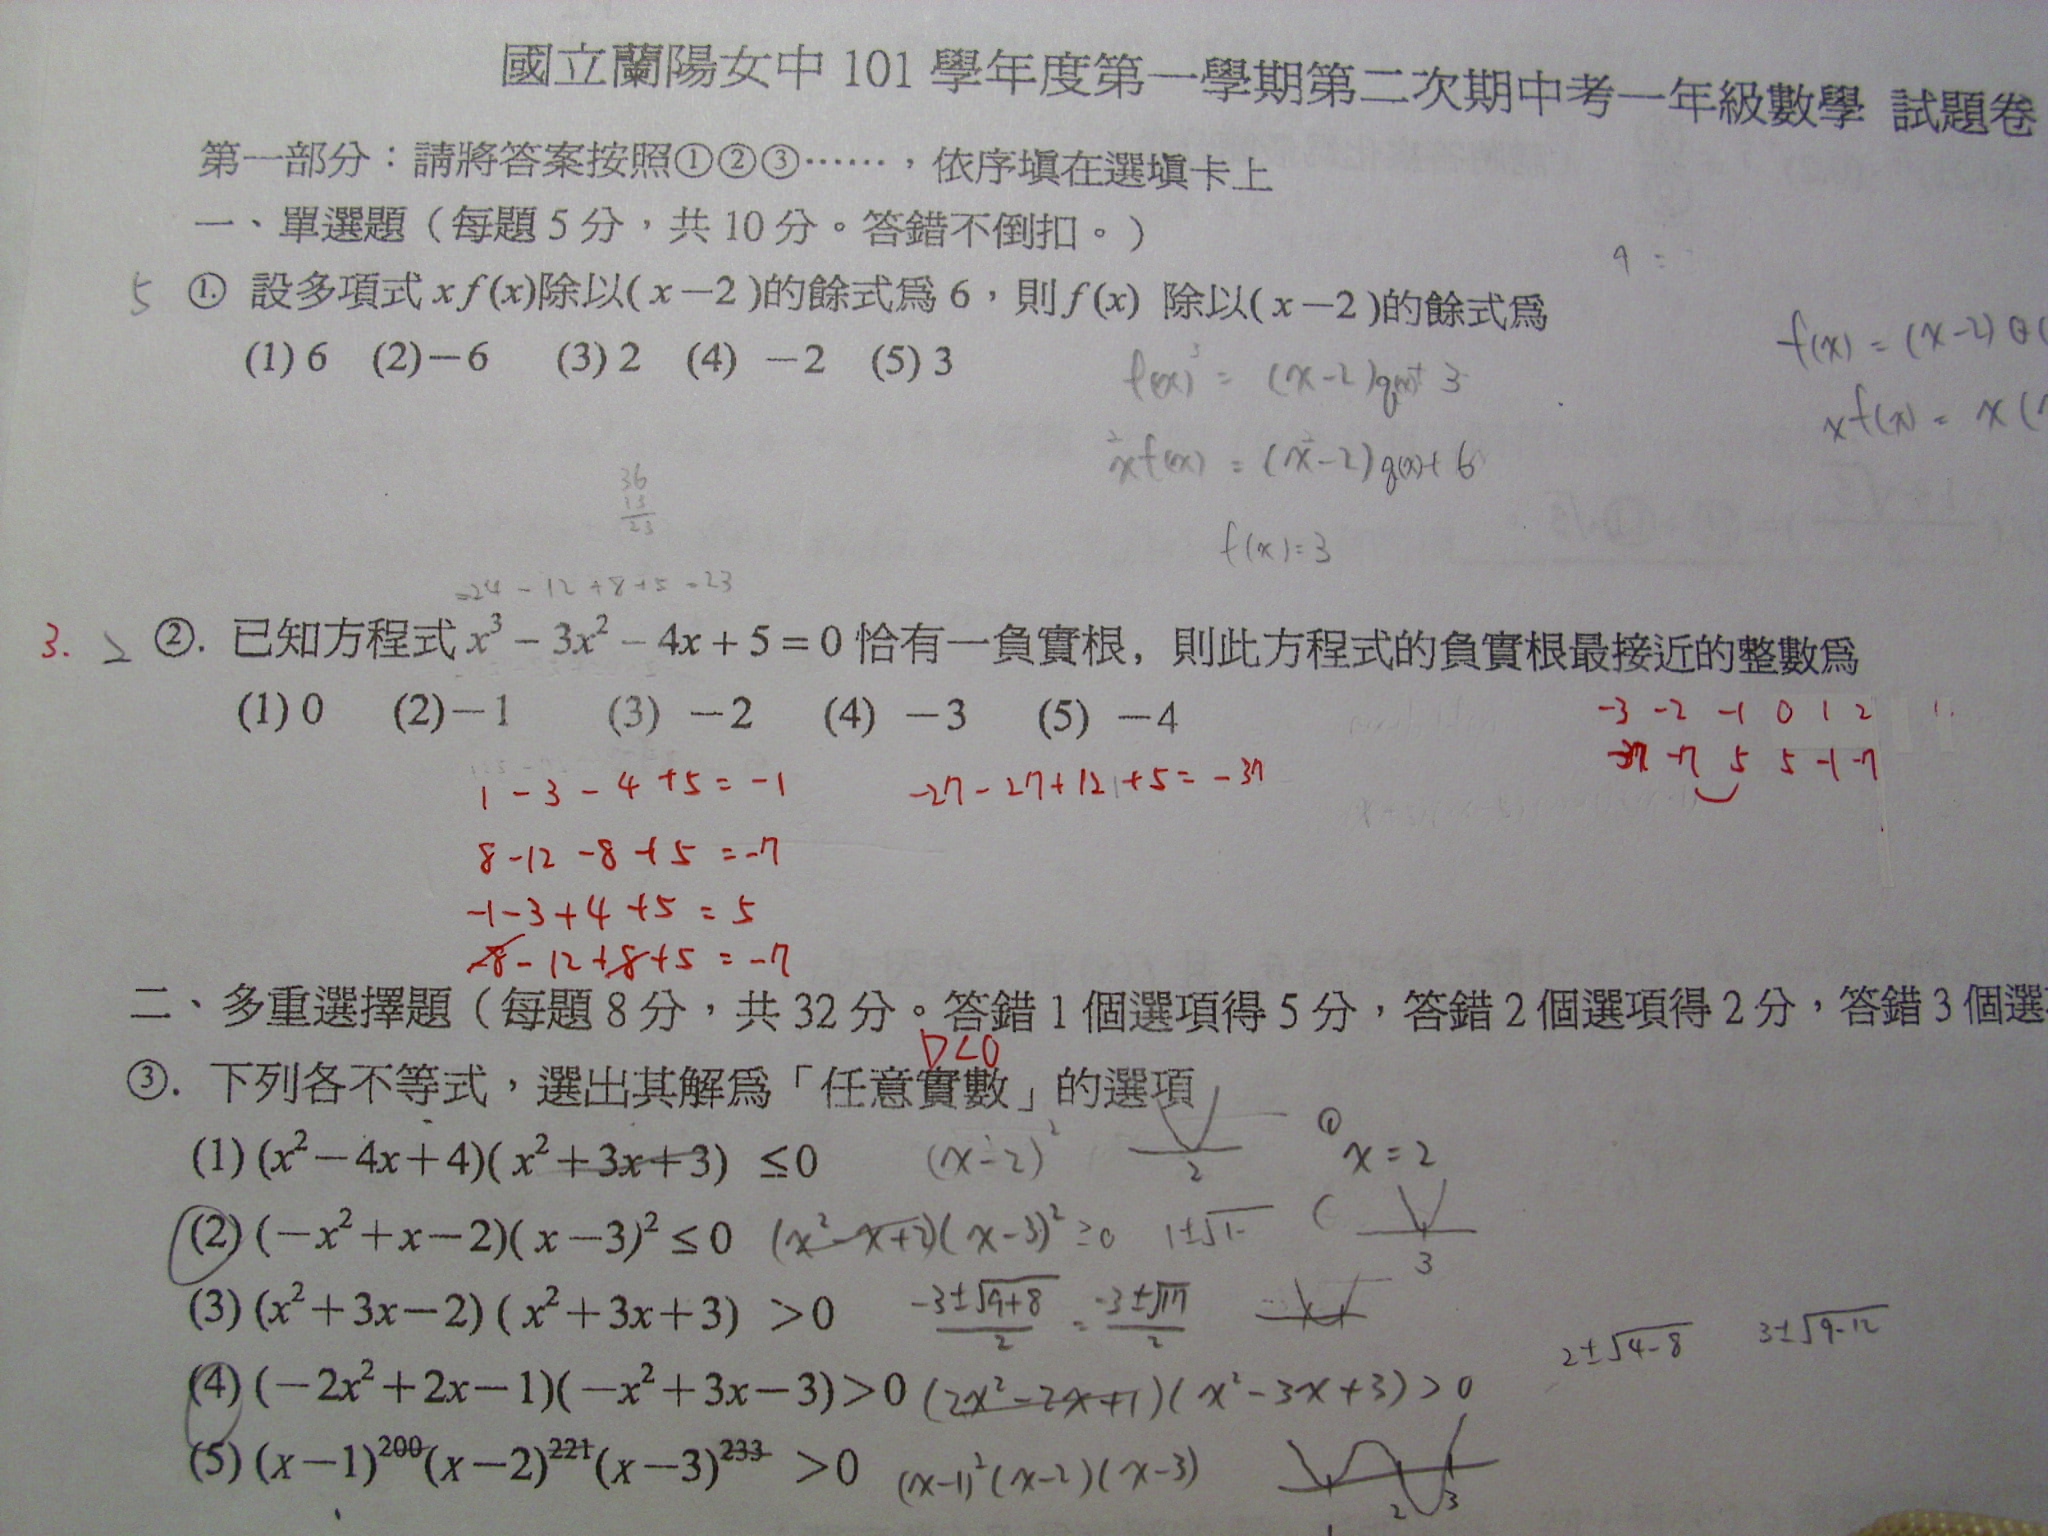 國立蘭陽女中 101 學年度第一學期第二次期中考一年級數學 試題卷
第一部分：請將答案按照①②③……，依序填在選填卡上
一、單選題（每題 5 分，共 10 分。答錯不倒扣。）
5 ①. 設多項式 x f(x)除以( x－2 )的餘式為 6，則 f(x) 除以( x－2 )的餘式為
f(x) = (x-2)
(1) 6 (2)－6 (3) 2 (4) －2 (5) 3
f(x) = (x-2)q(x)+ 3
xf(x) = x(
xf(x) = (x-2)q(x)+ 6
36
13
23
f(x)=3
=24 - 12 + 8 + 5 = 23
3. 2 ②. 已知方程式 x³ − 3x² − 4x + 5 = 0 恰有一負實根，則此方程式的負實根最接近的整數為
(1) 0 (2)－1 (3) －2 (4) －3 (5) －4
-3 -2 -1 0 1 2
-37 -7 5 5 -1 -7
1 - 3 - 4 + 5 = -1 -27 - 27 + 12 + 5 = -37
8 - 12 - 8 + 5 = -7
-1 - 3 + 4 + 5 = 5
-8 - 12 + 8 + 5 = -7
二、多重選擇題（每題 8 分，共 32 分。答錯 1 個選項得 5 分，答錯 2 個選項得 2 分，答錯 3 個選
D<0
③. 下列各不等式，選出其解為「任意實數」的選項
(1) (x²－4x＋4)( x²＋3x＋3) ≤0 (x-2)² 2 ① x = 2
(2) (－x²＋x－2)( x－3)² ≤ 0 (x²-x+2)(x-3)² ≥0 1±√1- 3
(3) (x²＋3x－2) ( x²＋3x＋3) >0 -3±√9+8 / 2 = -3±√17 / 2
2±√4-8 3±√9-12
(4) (－2x²＋2x－1)(－x²＋3x－3)>0 (2x²-2x+1)(x²-3x+3)>0
(5) (x－1)²⁰⁰(x－2)²²¹(x－3)²³³ >0 (x-1)²(x-2)(x-3) 1 2 3